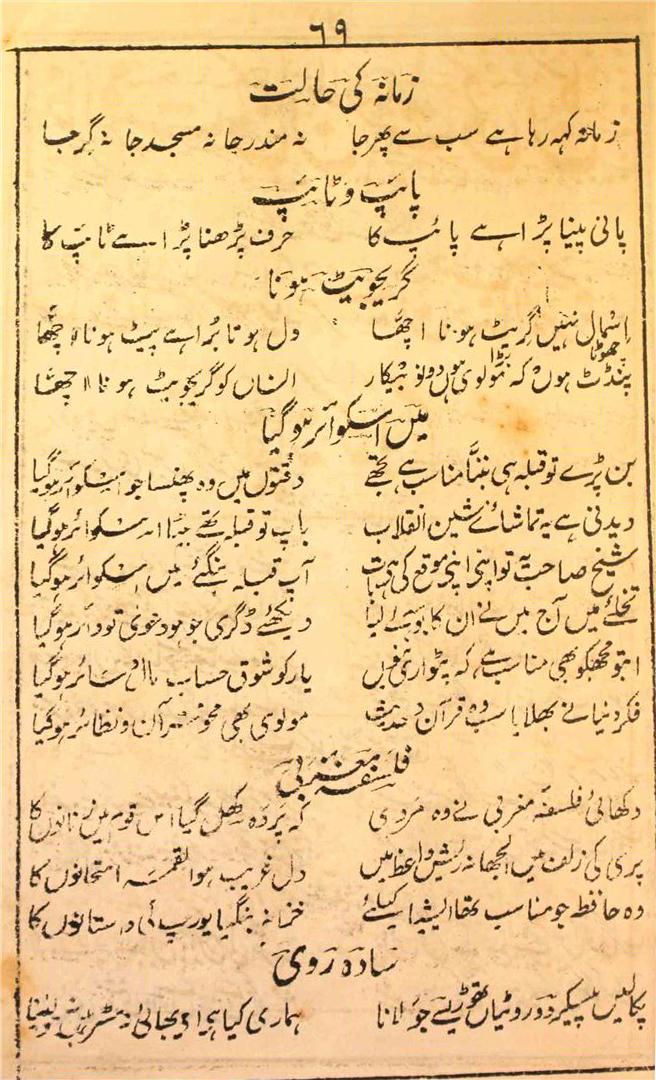 ٦٩
زمانہ کی حالت
زمانہ کہہ رہا ہے سب سے پھر جا نہ مندر جا نہ مسجد جا نہ گرجا
پائپ و ٹائپ
پانی پینا پڑا ہے پائپ کا حرف پڑھنا پڑا ہے ٹائپ کا
گریجویٹ ہونا
اسمال نہیں گریٹ ہونا اچھا دل ہوتا برا ہے پیٹ ہونا اچھا
پنڈت ہوں کہ مولوی ہوں دونو بیکار انساں کو گریجویٹ ہونا اچھا
چھوٹا بڑا
میں اسکوائر ہوگیا
بن پڑے تو قبلہ ہی بننا مناسب ہے تجھے دقتوں میں وہ پھنسا جو اسکوائر ہوگیا
دیدنی ہے یہ تماشائے مشین انقلاب باپ تو قبلہ تھے بیٹا اسکوائر ہوگیا
شیخ صاحب یہ تو اپنی اپنی موقع کی ہے بات آپ قبلہ بنگئے میں اسکوائر ہوگیا
تخلئے میں آج میں نے ان کا بوسہ لے لیا دیکھئے ڈگری جو ہو دعوی تو دائر ہوگیا
ابتو مجھکو بھی مناسب ہے کہ پٹواری بنوں یار کو شوق حساب سائر ہوگیا
فکر دنیا نے بھلایا سب وہ قرآن و حدیث مولوی بھی محو و نظائر ہوگیا
فلسفہ مغربی
دکھائی فلسفۂ مغربی نے وہ مردی کہ پردہ کھل گیا اس قوم میں زنانوں کا
پری کی زلف میں الجھا نہ ریش واعظ میں دل غریب ہوا لقمہ امتحانوں کا
وہ حافظہ جو مناسب تھا ایشیا کے لئے خزانہ بنگیا یورپ کی داستانوں کا
سادہ روی
پکالیں پیسکر دو روٹیاں تھوڑے سے جو لانا ہماری کیا ہے اے بھائی نہ مسٹر ہیں نہ مولینا